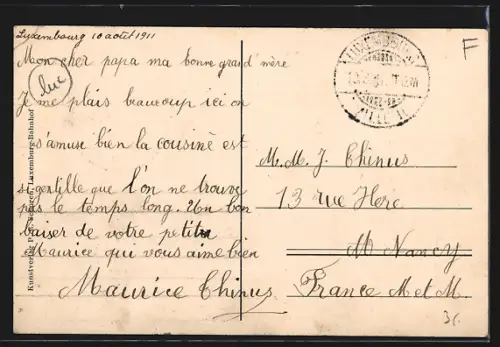 Luxembourg 10 août 1911
Mon cher papa ma bonne grand' mère
luc
Je me plais beaucoup ici on
s'amuse bien la cousine est
si gentille que l'on ne trouve
pas le temps long. Un bon
baiser de votre petit
Maurice qui vous aime bien
Maurice Thinus
Kunstverlag P. C. Schoren, Luxemburg-Bahnhof
LUXEMBOURG
VILLE
F
M. M. J. Thinus
13 rue Here
M Nancy
France M et M.